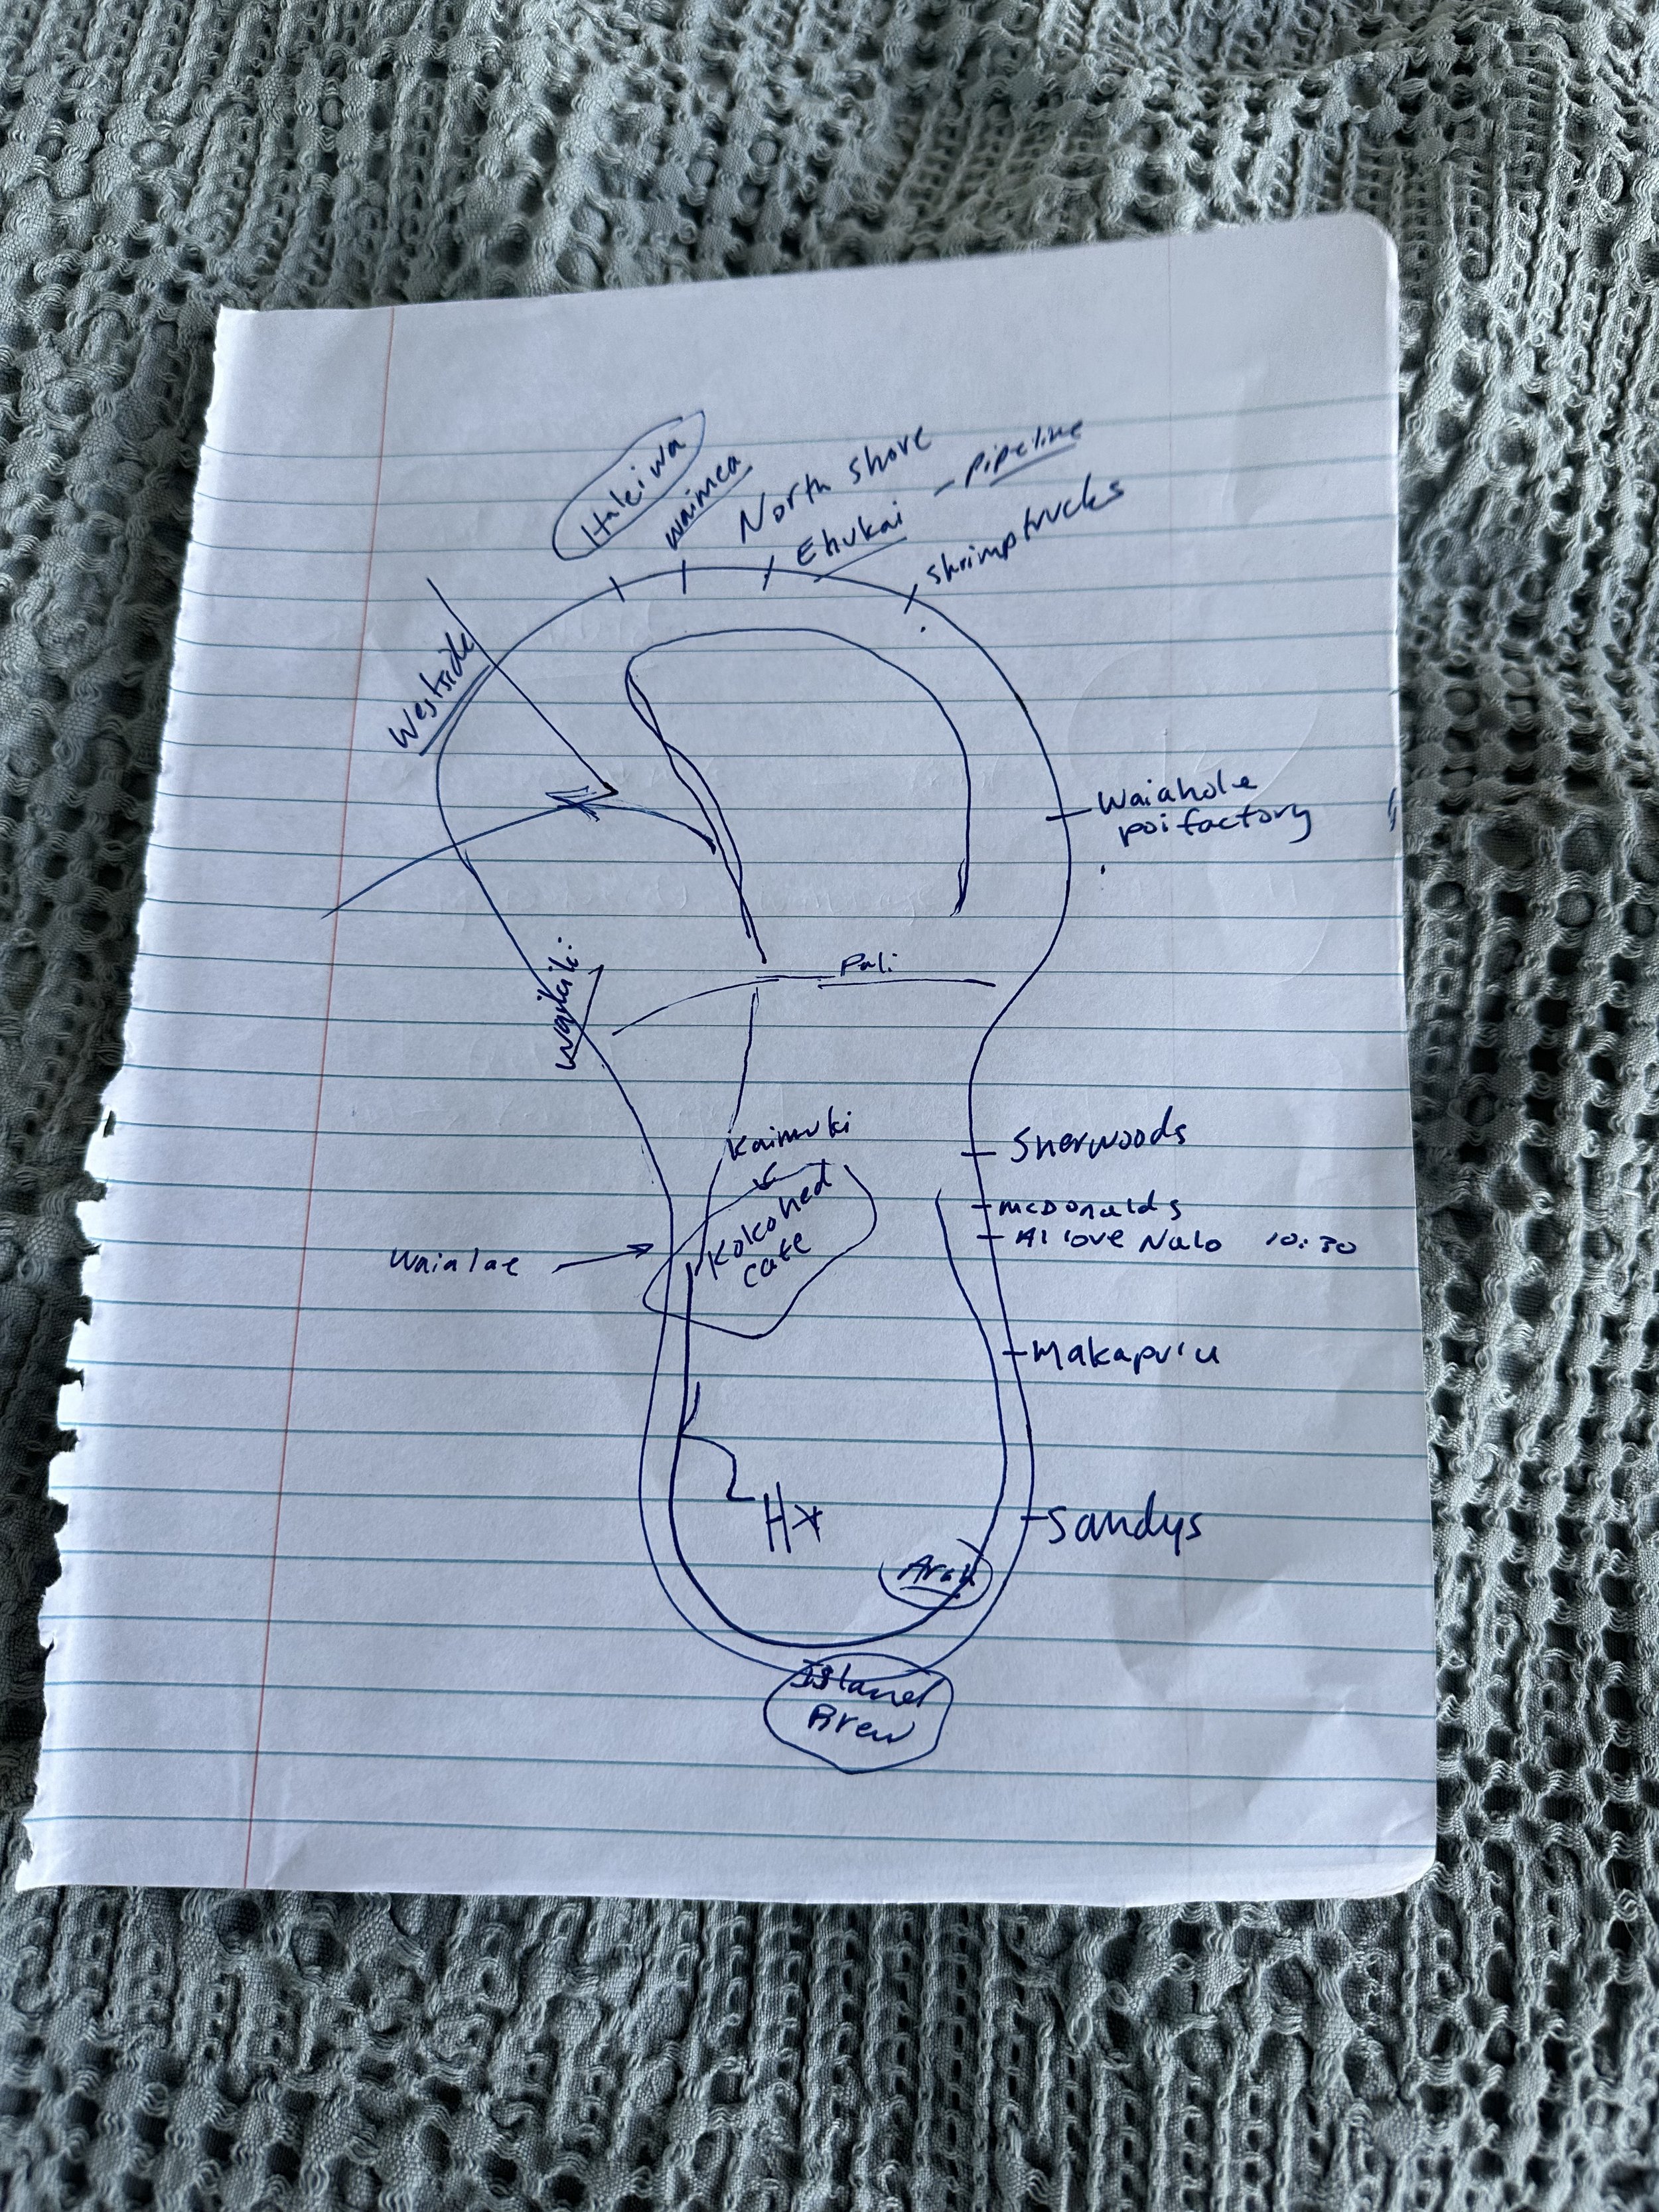 Haleiwa
waimea
North shore
Ehukai - pipeline
shrimptrucks
Westside
Waiahole
poifactory
Waikiki
Pali
Kaimuki
Sherwoods
Kokohed
cafe
mcDonalds
Al love Nalo 10:30
Waialae
Makapu'u
Sandys
Island
Brew